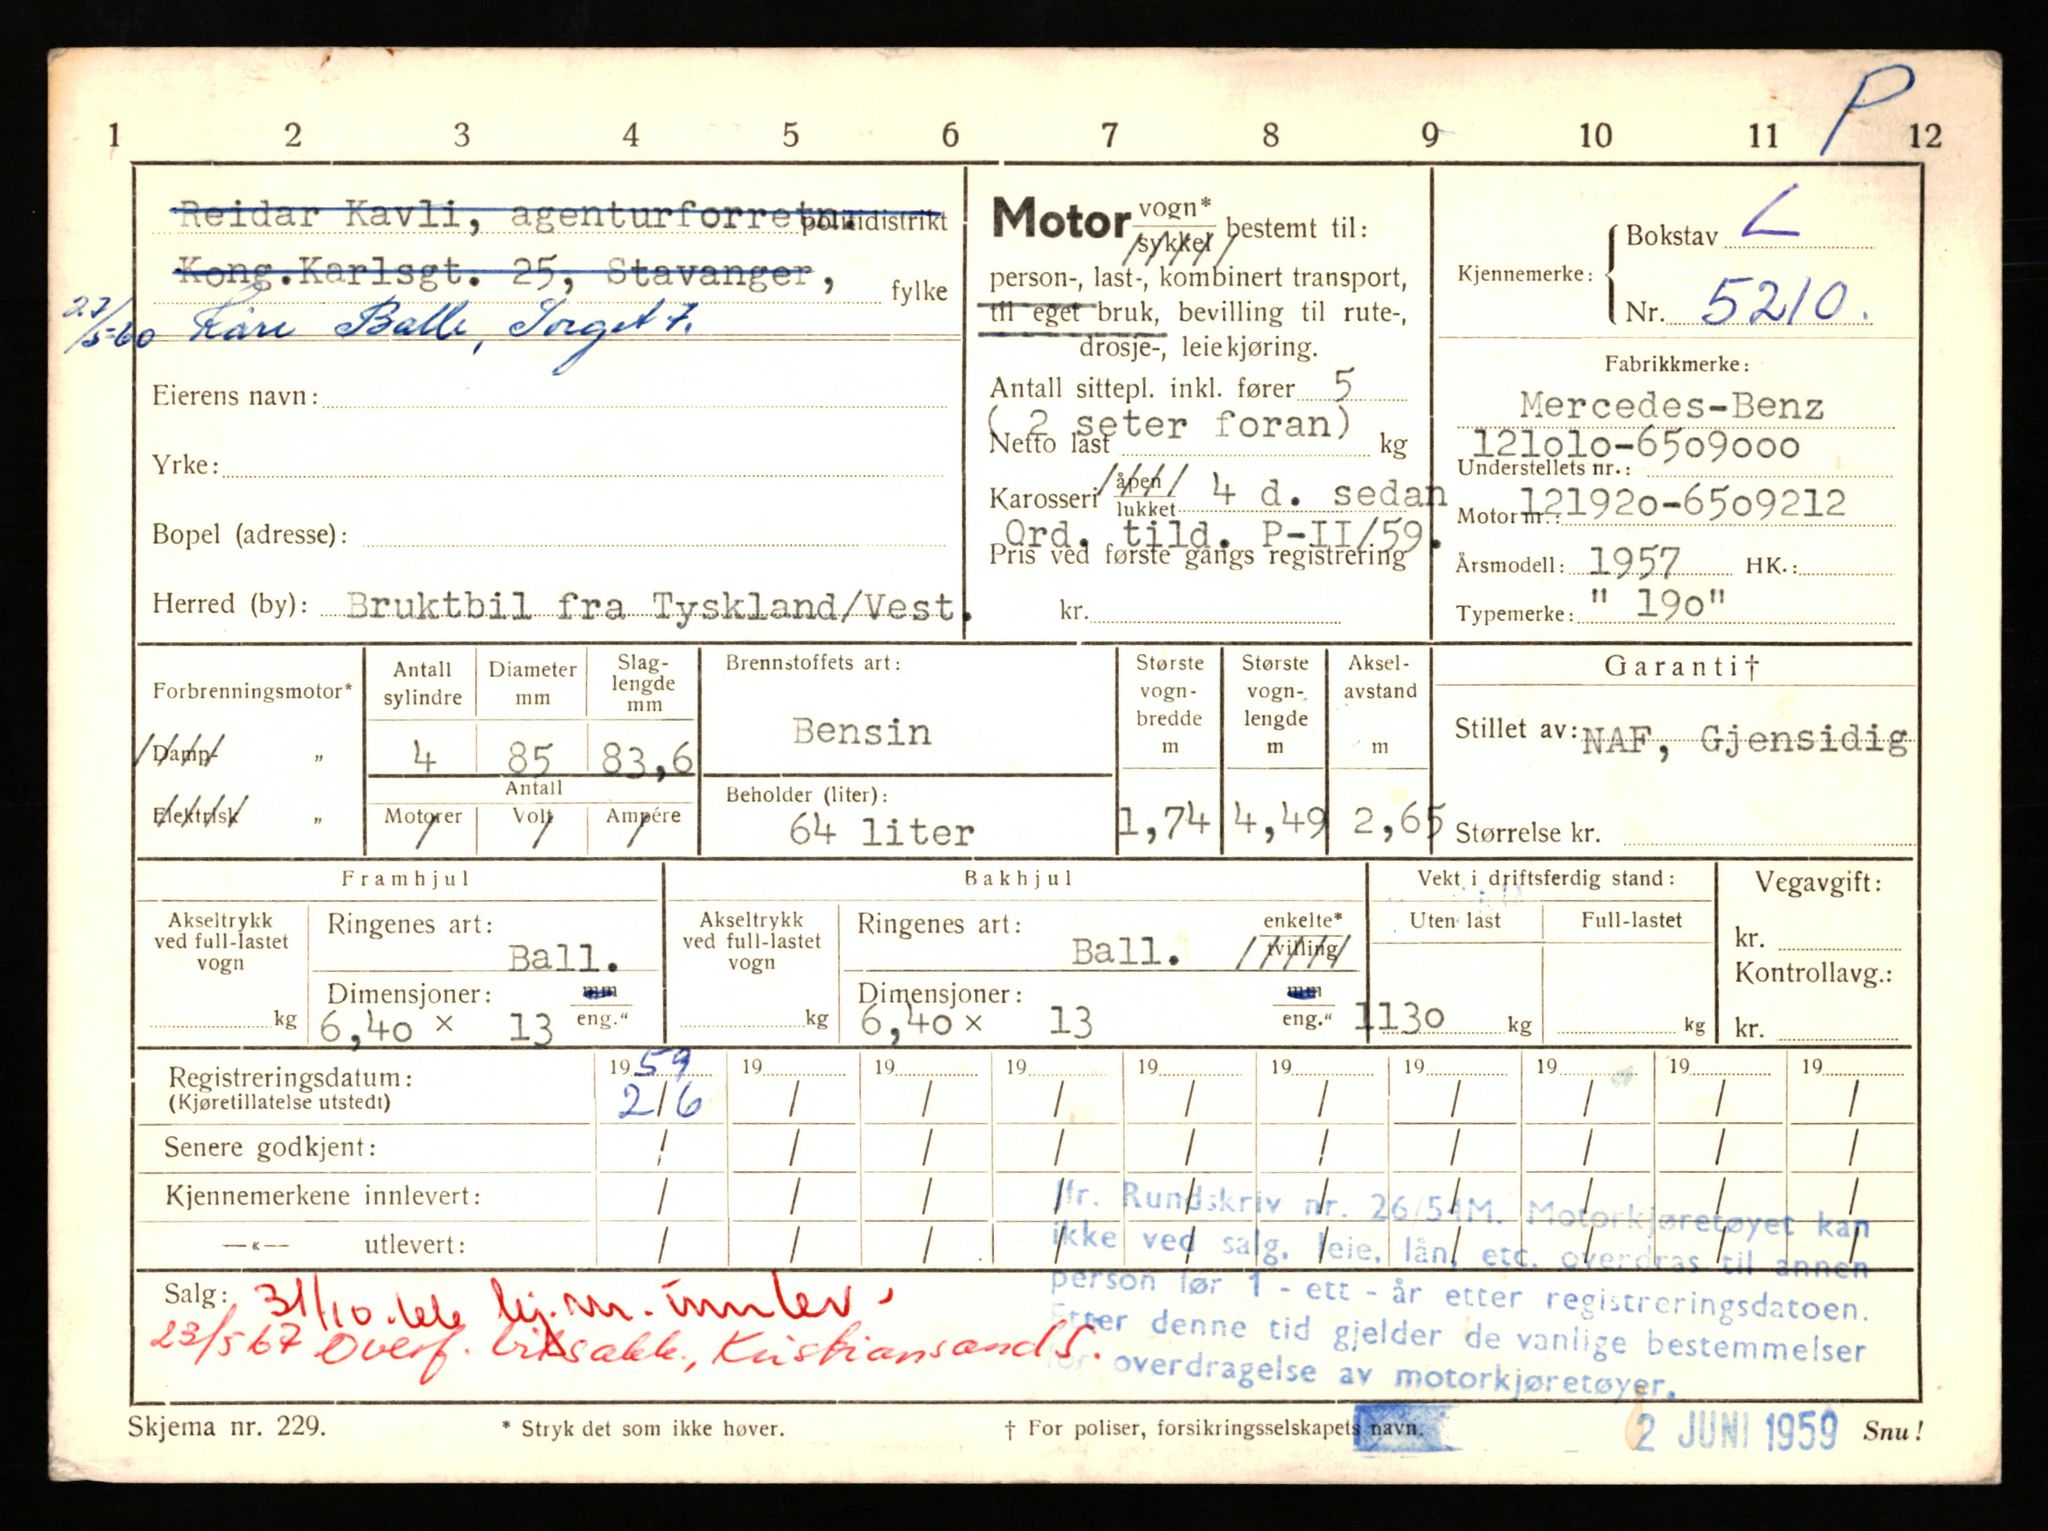 P
1 2 3 4 5 6 7 8 9 10 11 12
Reidar Kavli, agenturforretn. politidistrikt
Kong.Karlsgt. 25, Stavanger, fylke
27/5-60 Kåre Balle, Torget 7.
Eierens navn:
Yrke:
Bopel (adresse):
Herred (by): Bruktbil fra Tyskland/Vest.
Motor vogn* sykkel bestemt til:
person-, last-, kombinert transport,
til eget bruk, bevilling til rute-,
drosje-, leiekjøring.
Antall sittepl. inkl. fører 5
( 2 seter foran)
Netto last kg
Karosseri åpen lukket 4 d. sedan
Ord. tild. P-II/59.
Pris ved første gangs registrering
kr.
Kjennemerke: Bokstav L
Nr. 5210.
Fabrikkmerke:
Mercedes-Benz
121010-6509000
Understellets nr.:
Motor nr.: 121920-6509212
Årsmodell: 1957 HK.:
Typemerke: " 190"
Forbrenningsmotor*
Damp- "
Elektrisk "
Antall sylindre
4
Diameter mm
85
Slag-
lengde
mm
83,6
Antall
Motorer Volt Ampére
Brennstoffets art:
Bensin
Beholder (liter):
64 liter
Største
vogn-
bredde
m
1,74
Største
vogn-
lengde
m
4,49
Aksel-
avstand
m
2,65
Garanti†
Stillet av: NAF, Gjensidig
Størrelse kr.
Framhjul
Akseltrykk
ved full-lastet
vogn
kg
Ringenes art:
Ball.
Dimensjoner: mm
6,40 × 13 eng."
Bakhjul
Akseltrykk
ved full-lastet
vogn
kg
Ringenes art: enkelte*
Ball. tvilling
Dimensjoner: mm
6,40 × 13 eng."
Vekt i driftsferdig stand:
Uten last Full-lastet
1130 kg kg
Vegavgift:
kr.
Kontrollavg.:
kr.
Registreringsdatum: 1959 19 19 19 19 19 19 19 19 19
(Kjøretillatelse utstedt) 2/6 / / / / / / / / /
Senere godkjent: / / / / / / / / / /
Kjennemerkene innlevert: / / / / / / / / / /
—«— utlevert: / / / / / / / / / /
Jfr. Rundskriv nr. 26/54M. Motorkjøretøyet kan
ikke ved salg, leie, lån, etc. overdras til annen
person før 1 - ett - år etter registreringsdatoen.
Etter denne tid gjelder de vanlige bestemmelser
for overdragelse av motorkjøretøyer.
Salg: 31/10.66 kj.m. innlev.
23/5 67 Overf. Kristiansand S.
Skjema nr. 229. * Stryk det som ikke høver. † For poliser, forsikringsselskapets navn. 2 JUNI 1959 Snu!